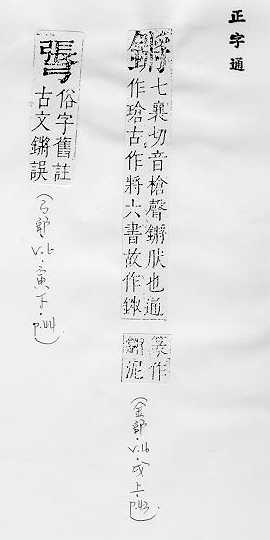 正字通
鏘
七襄切音槍聲鏘狀也通
作瑲古作將六書故作
篆作
泥
(金部·V.16·戌上·p.43)
俗字舊註
古文鏘誤
(弓部·V.6·寅下·p.44)